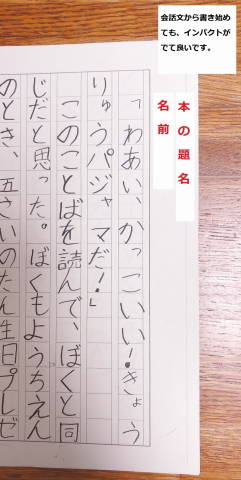 会話文から書き始め
ても、インパクトが
でて良いです。
本の題名
名前
「わあい、かっこいい!きょう
りゅうパジャマだ!」
このことばを読んで、ぼくと同
じだと思った。ぼくもようちえん
のとき、五さいのたん生日プレゼ